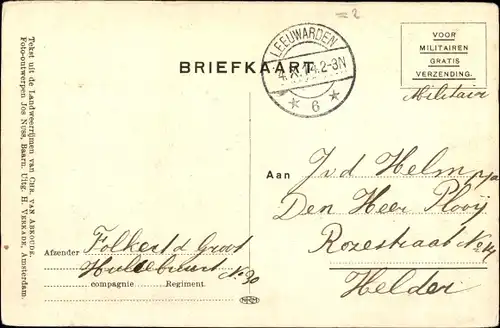 = 2
LEEUWARDEN
4.X.14.2-3N
* 6 *
BRIEFKAART
VOOR
MILITAIREN
GRATIS
VERZENDING.
Militair
Tekst uit de Landweerrijmen van CHR. VAN ABKOUDE.
Foto-ontwerpen JOS NUSS, Baarn. Uitg. H. VERKADE, Amsterdam.
Aan J v d Helm p/a
Den Heer Plooij
Rozestraat No 24
Helder
Afzender Folkert d Groot
No 30
compagnie Regiment.